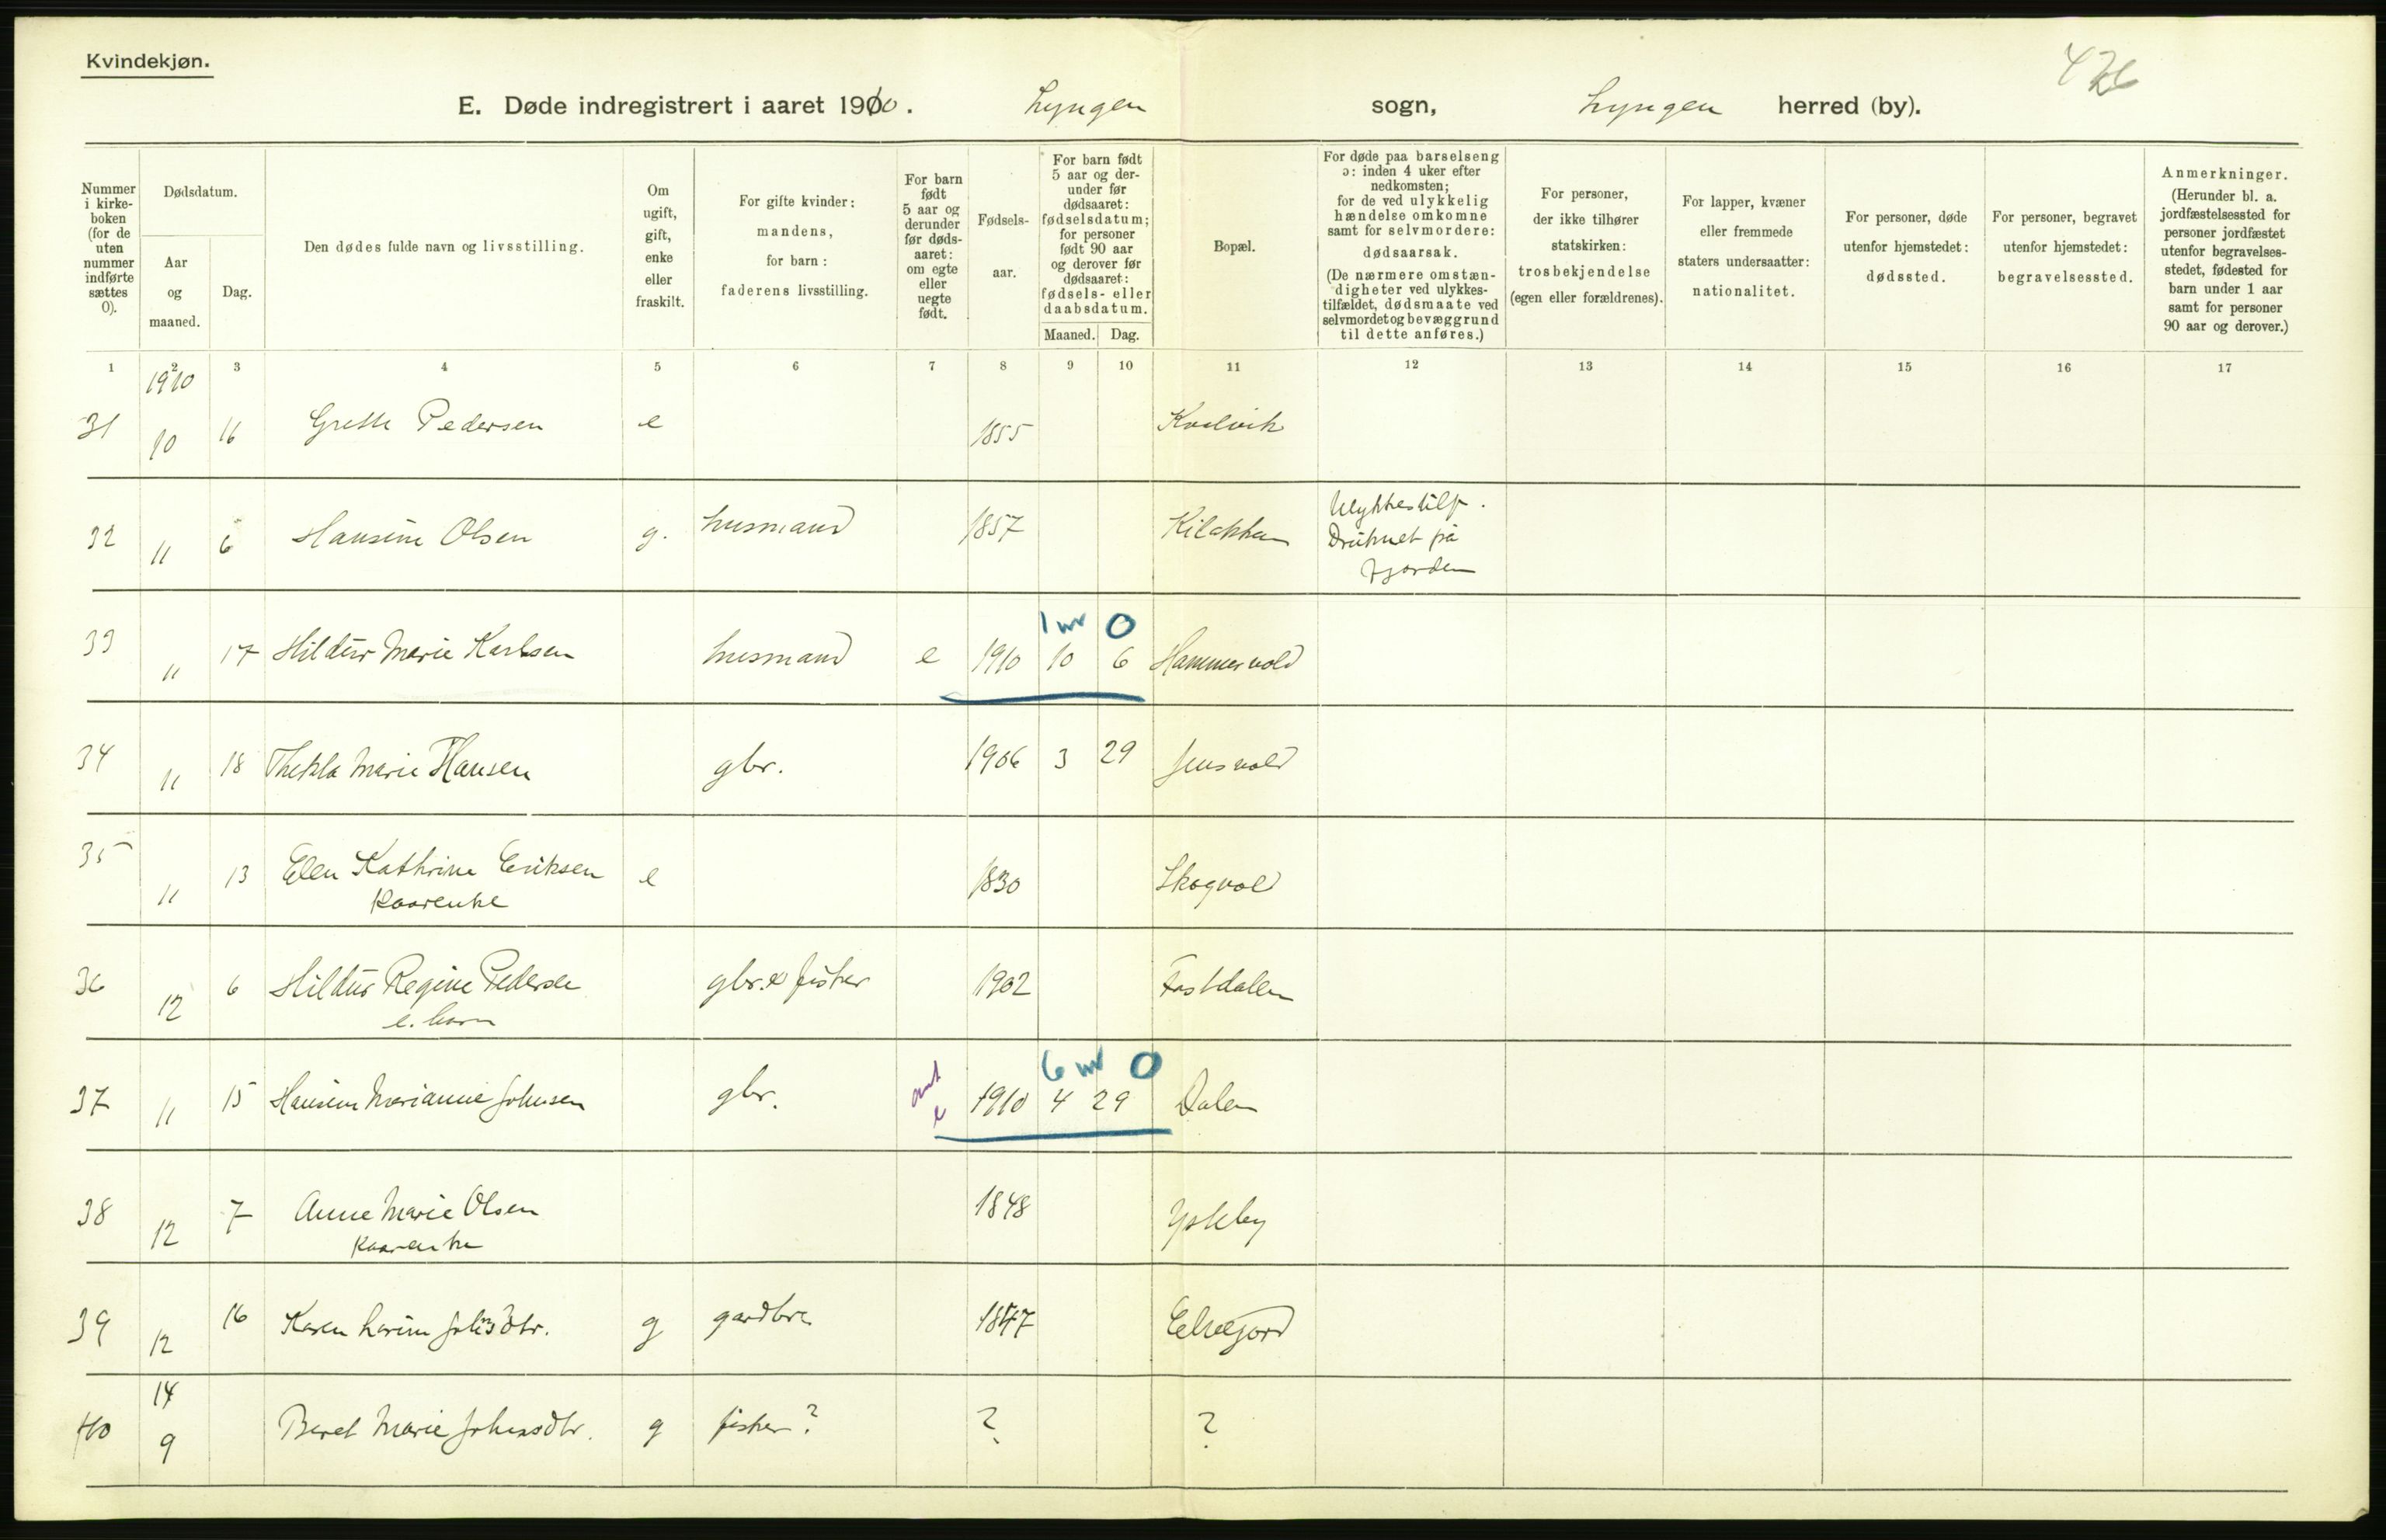 Kvindekjøn.
426
E. Døde indregistrert i aaret 1910. Lyngen sogn, Lyngen herred (by).
Nummer i kirke-boken (for de uten nummer indførte sættes 0).
Dødsdatum.
Aar og maaned.
Dag.
Den dødes fulde navn og livsstilling.
Om ugift, gift, enke eller fraskilt.
For gifte kvinder: mandens, for barn: faderens livsstilling.
For barn født 5 aar og derunder før døds-aaret: om egte eller uegte født.
Fødsels-aar.
For barn født 5 aar og der-under før dødsaaret: fødselsdatum; for personer født 90 aar og derover før dødsaaret: fødsels- eller daabsdatum.
Maaned. Dag.
Bopæl.
For døde paa barselseng ɔ: inden 4 uker efter nedkomsten; for de ved ulykkelig hændelse omkomne samt for selvmordere: dødsaarsak. (De nærmere omstæn-digheter ved ulykkes-tilfældet, dødsmaate ved selvmordet og bevæggrund til dette anføres.)
For personer, der ikke tilhører statskirken: trosbekjendelse (egen eller forældrenes).
For lapper, kvæner eller fremmede staters undersaatter: nationalitet.
For personer, døde utenfor hjemstedet: dødssted.
For personer, begravet utenfor hjemstedet: begravelsessted.
Anmerkninger. (Herunder bl. a. jordfæstelsessted for personer jordfæstet utenfor begravelses-stedet, fødested for barn under 1 aar samt for personer 90 aar og derover.)
1 2 3 4 5 6 7 8 9 10 11 12 13 14 15 16 17
1910
31 10 16 Grethe Pedersen e 1855 Kvalvik
32 11 6 Hansine Olsen g. husmand 1857 Kilakken Ulykkestilf.
Druknet på
Fjorden
1 m 0
33 11 17 Hildur Marie Karlsen husmand e 1910 10 6 Hammervold
34 11 18 Thekla Marie Hansen gbr. 1906 3 29 Jensvold
35 11 13 Elen Kathrine Eriksen e 1830 Skogvold
Kaarenke
36 12 6 Hildur Regine Pedersen gbr. & fisker 1902 Fastdalen
e. barn
6 m 0
37 11 15 Hansine Marianne Johnsen gbr. ant e 1910 4 29 Dalen
38 12 7 Anne Marie Olsen 1848 Ytteby
Kaarenke
39 12 16 Karen Larine Johsdtr. g gardbr. 1847 Elvejord
14
40 9 Beret Marie Johnsdtr. g fisker? ? ?